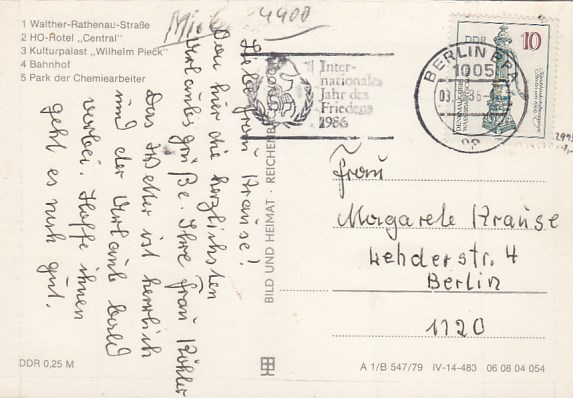 1 Walther-Rathenau-Straße
2 HO-Hotel „Central"
3 Kulturpalast „Wilhelm Pieck"
4 Bahnhof
5 Park der Chemiearbeiter
4400
Liebe Frau Krause!
Von hier die herzlichsten
Urlaubsgrüße. Ihre Frau Köhler
Das Wetter ist herrlich
und der Urlaub bald
vorbei. Hoffe ihnen
geht es noch gut.
BILD UND HEIMAT · REICHENBACH
Inter-
nationales
Jahr des
Friedens
1986
BERLIN BPA
1005
DDR
10
Frau
Margarete Krause
Lehderstr. 4
Berlin
1120
DDR 0,25 M
A 1/B 547/79 IV-14-483 06 08 04 054